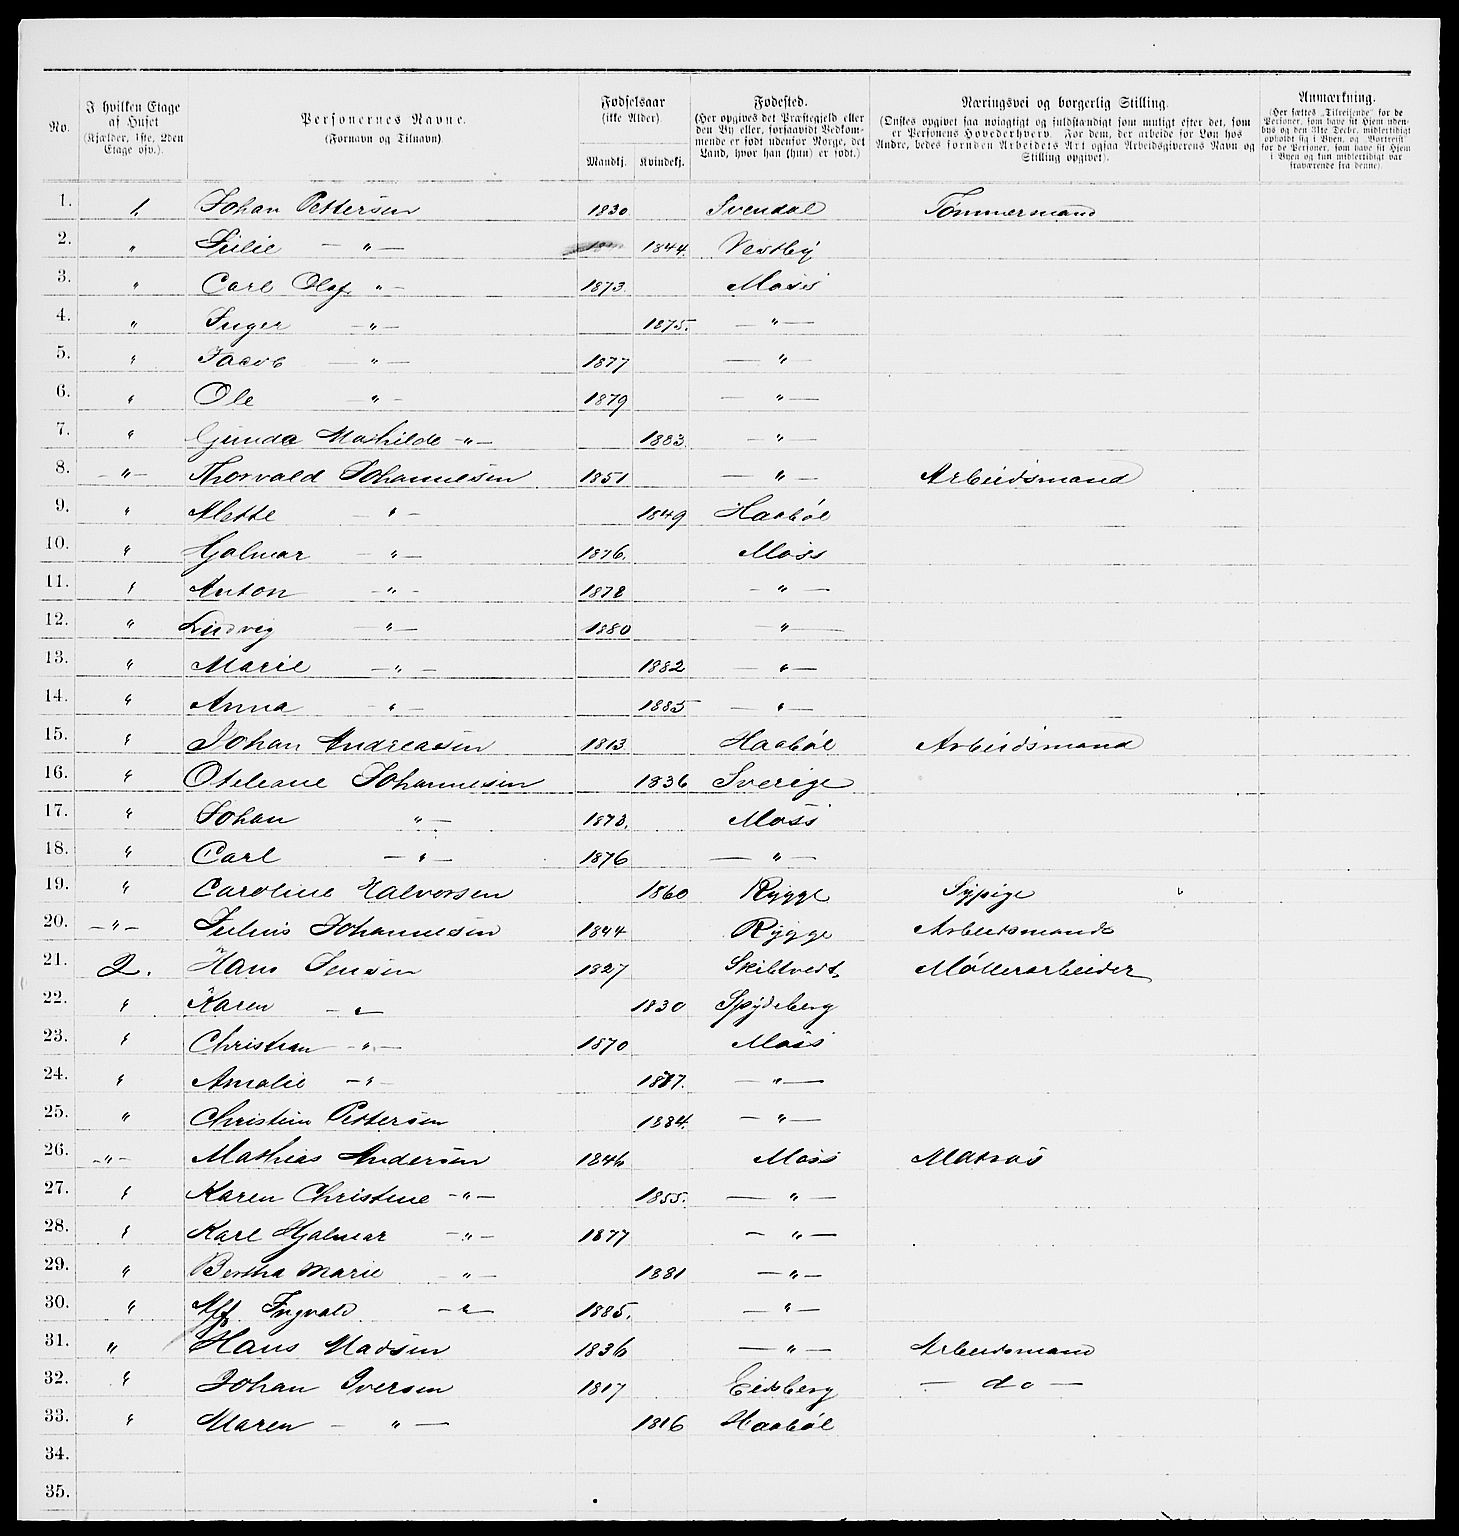 No. I hvilken Etage af Huset (Kjælder, 1ste, 2den Etage osv.). Personernes Navne. (Fornavn og Tilnavn). Fødselsaar (ikke Alder). Mandkj. Kvindekj. Fødested. (Her opgives det Præstegjeld eller den By eller, forsaavidt Vedkommende er født udenfor Norge, det Land, hvor han (hun) er født.) Næringsvei og borgerlig Stilling. (Ønskes opgivet saa nøiagtigt og fuldstændigt som muligt efter det, som er Personens Hovederhverv. For dem, der arbeide for Løn hos Andre, bedes foruden Arbeidets Art ogsaa Arbeidsgiverens Navn og Stilling opgivet). Anmærkning. (Her sættes „Tilreisende“ for de Personer, som have sit Hjem udenbys og den 31te Decbr. midlertidigt opholdt sig i Byen, og „Bortreist“ for de Personer, som have sit Hjem i Byen og kun midlertidigt var fraværende fra denne).
1. 1. Johan Pettersen 1830 Svendal Tømmermand
2. " Julie — " — 1844. Vestby
3. " Carl Olaf " — 1873. Moss
4. " Inger — " — 1875. — " —
5. " Jacob — " — 1877 — " —
6. " Ole — " — 1879 — " —
7. " Gunda Mathilde - " - 1883. — " —
8. — " — Thorvald Johannesen 1851 — " — Arbeidsmand
9. " Mette — " — 1849 Haabøl
10. " Hjalmar — " — 1876. Moss
11. " Anton — " — 1878 — " —
12. " Ludvig — " — 1880 — " —
13. " Marie — " — 1882 — " —
14. " Anna — " — 1885 — " —
15. " Johan Andreassen 1813 Haabøl Arbeidsmand
16. " Oteleane Johannesen 1836 Sverige
17. " Johan " — 1873. Moss
18. " Carl — " — 1876 — " —
19. " Caroline Halvorsen 1860 Rygge Sypige "
20. — " — Julius Johannesen 1844 Rygge Arbeidsmand
21. 2. Hans Jensen 1827 Skibtvedt. Møllerarbeider
22. " Karen — " — 1830 Spydeberg
23. " Christian — " — 1870 Moss
24. " Amalie — " — 1877. — " —
25. " Christin Pettersen 1884. — " —
26. — " — Mathias Andersen 1846 Moss Matros
27. " Karen Christine — " — 1855. — " —
28. " Karl Hjalmar — " — 1877 — " —
29. " Bertha Marie — " — 1881 — " —
30. " Alf Ingvald — " — 1885. — " —
31. " Hans Madsen 1836 — " — Arbeidsmand
32. " Johan Iversen 1817 Eidsberg — do —
33. " Maren — " — 1816 Haabøl
34.
35.